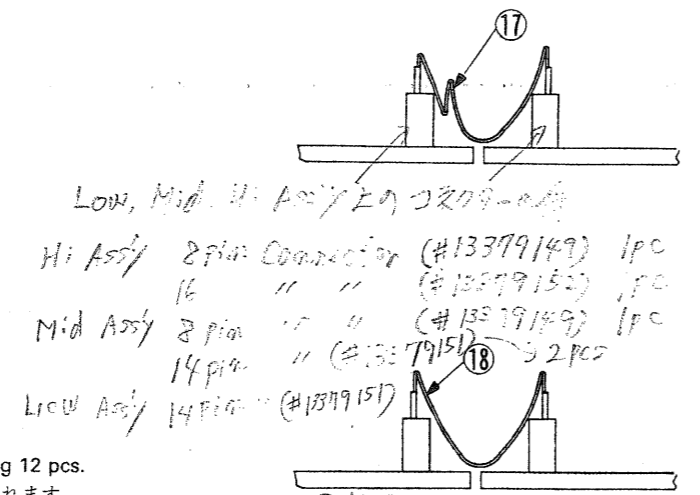 17
Low, Mid, Hi Ass'y 上の コネクターの
Hi Ass'y 8 pin Connector (#13379149) 1pc
16 〃 〃 (#13379152) 1pc
Mid Ass'y 8 pin 〃 〃 (#13379149) 1pc
14 pin 〃 (#13379151) 2 pcs
18
Low Ass'y 14 pin 〃 (#13379151)
g 12 pcs.
れます